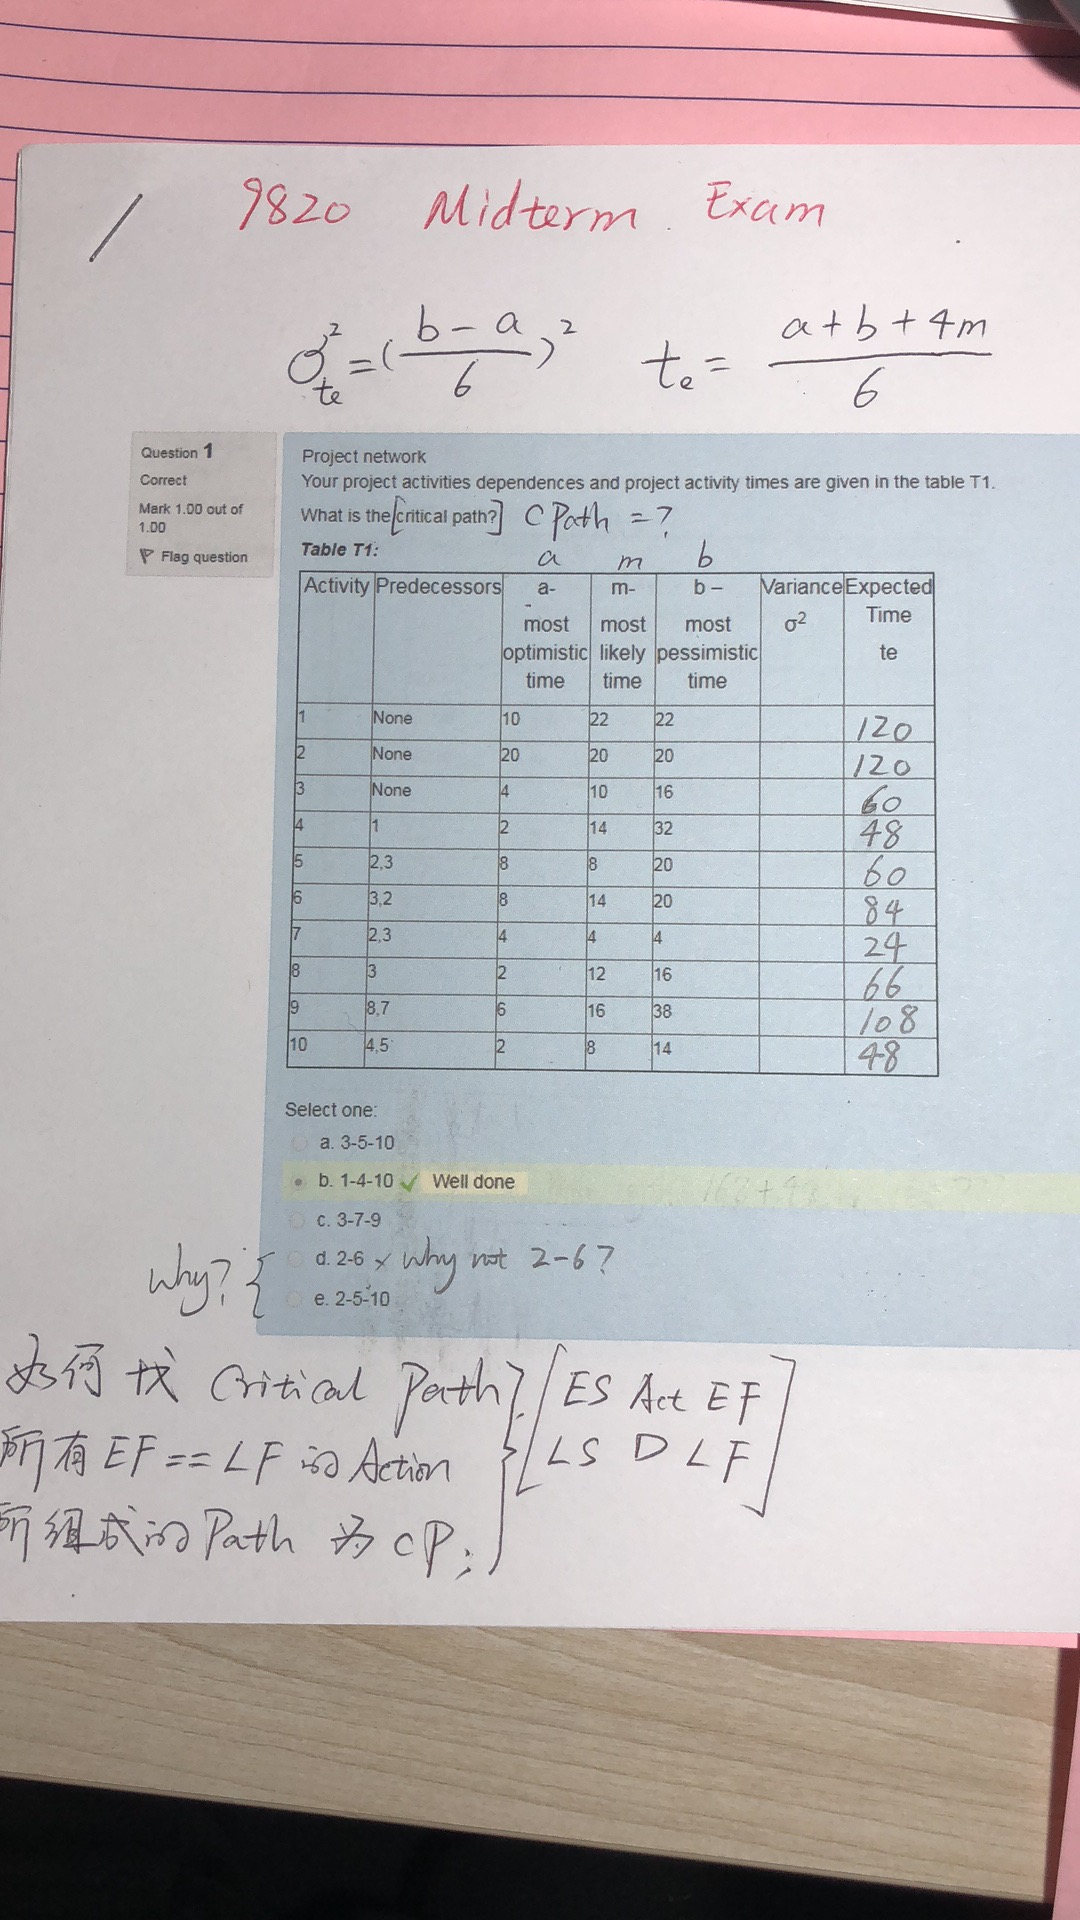 9820 Midterm Exam
σ²te = (b - a / 6)² te = a + b + 4m / 6
Question 1
Correct
Mark 1.00 out of
1.00
Flag question
Project network
Your project activities dependences and project activity times are given in the table T1.
What is the [critical path?] C Path = ?
Table T1:
a m b
Activity Predecessors a- most optimistic time m- most likely time b – most pessimistic time Variance σ² Expected Time te
1 None 10 22 22 120
2 None 20 20 20 120
3 None 4 10 16 60
4 1 2 14 32 48
5 2,3 8 8 20 60
6 3,2 8 14 20 84
7 2,3 4 4 4 24
8 3 2 12 16 66
9 8,7 6 16 38 108
10 4,5 2 8 14 48
Select one:
a. 3-5-10
b. 1-4-10 ✓ Well done
c. 3-7-9
d. 2-6 × Why not 2-6?
Why? {
e. 2-5-10
如何找 Critical Path? [ES Act EF
所有 EF == LF 的 Action } LS D LF]
所组成的 Path 为 CP;